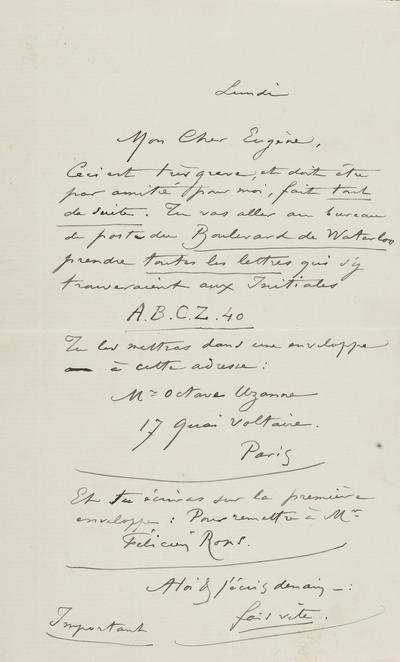 Lundi
Mon Cher Eugène,
Ceci est très grave, et doit être
par amitié pour moi, fait tout
de suite. Tu vas aller au bureau
de poste du Boulevard de Waterloo
prendre toutes les lettres qui s'y
trouveraient aux Initiales
A.B.C.Z.40
Tu les mettras dans une enveloppe
à cette adresse :
Mr Octave Uzanne
17 Quai Voltaire.
Paris
Et tu écriras sur la première
enveloppe : Pour remettre à Mr
Félicien Rops.
A toi & j'écris demain — :
fais vite.
Important